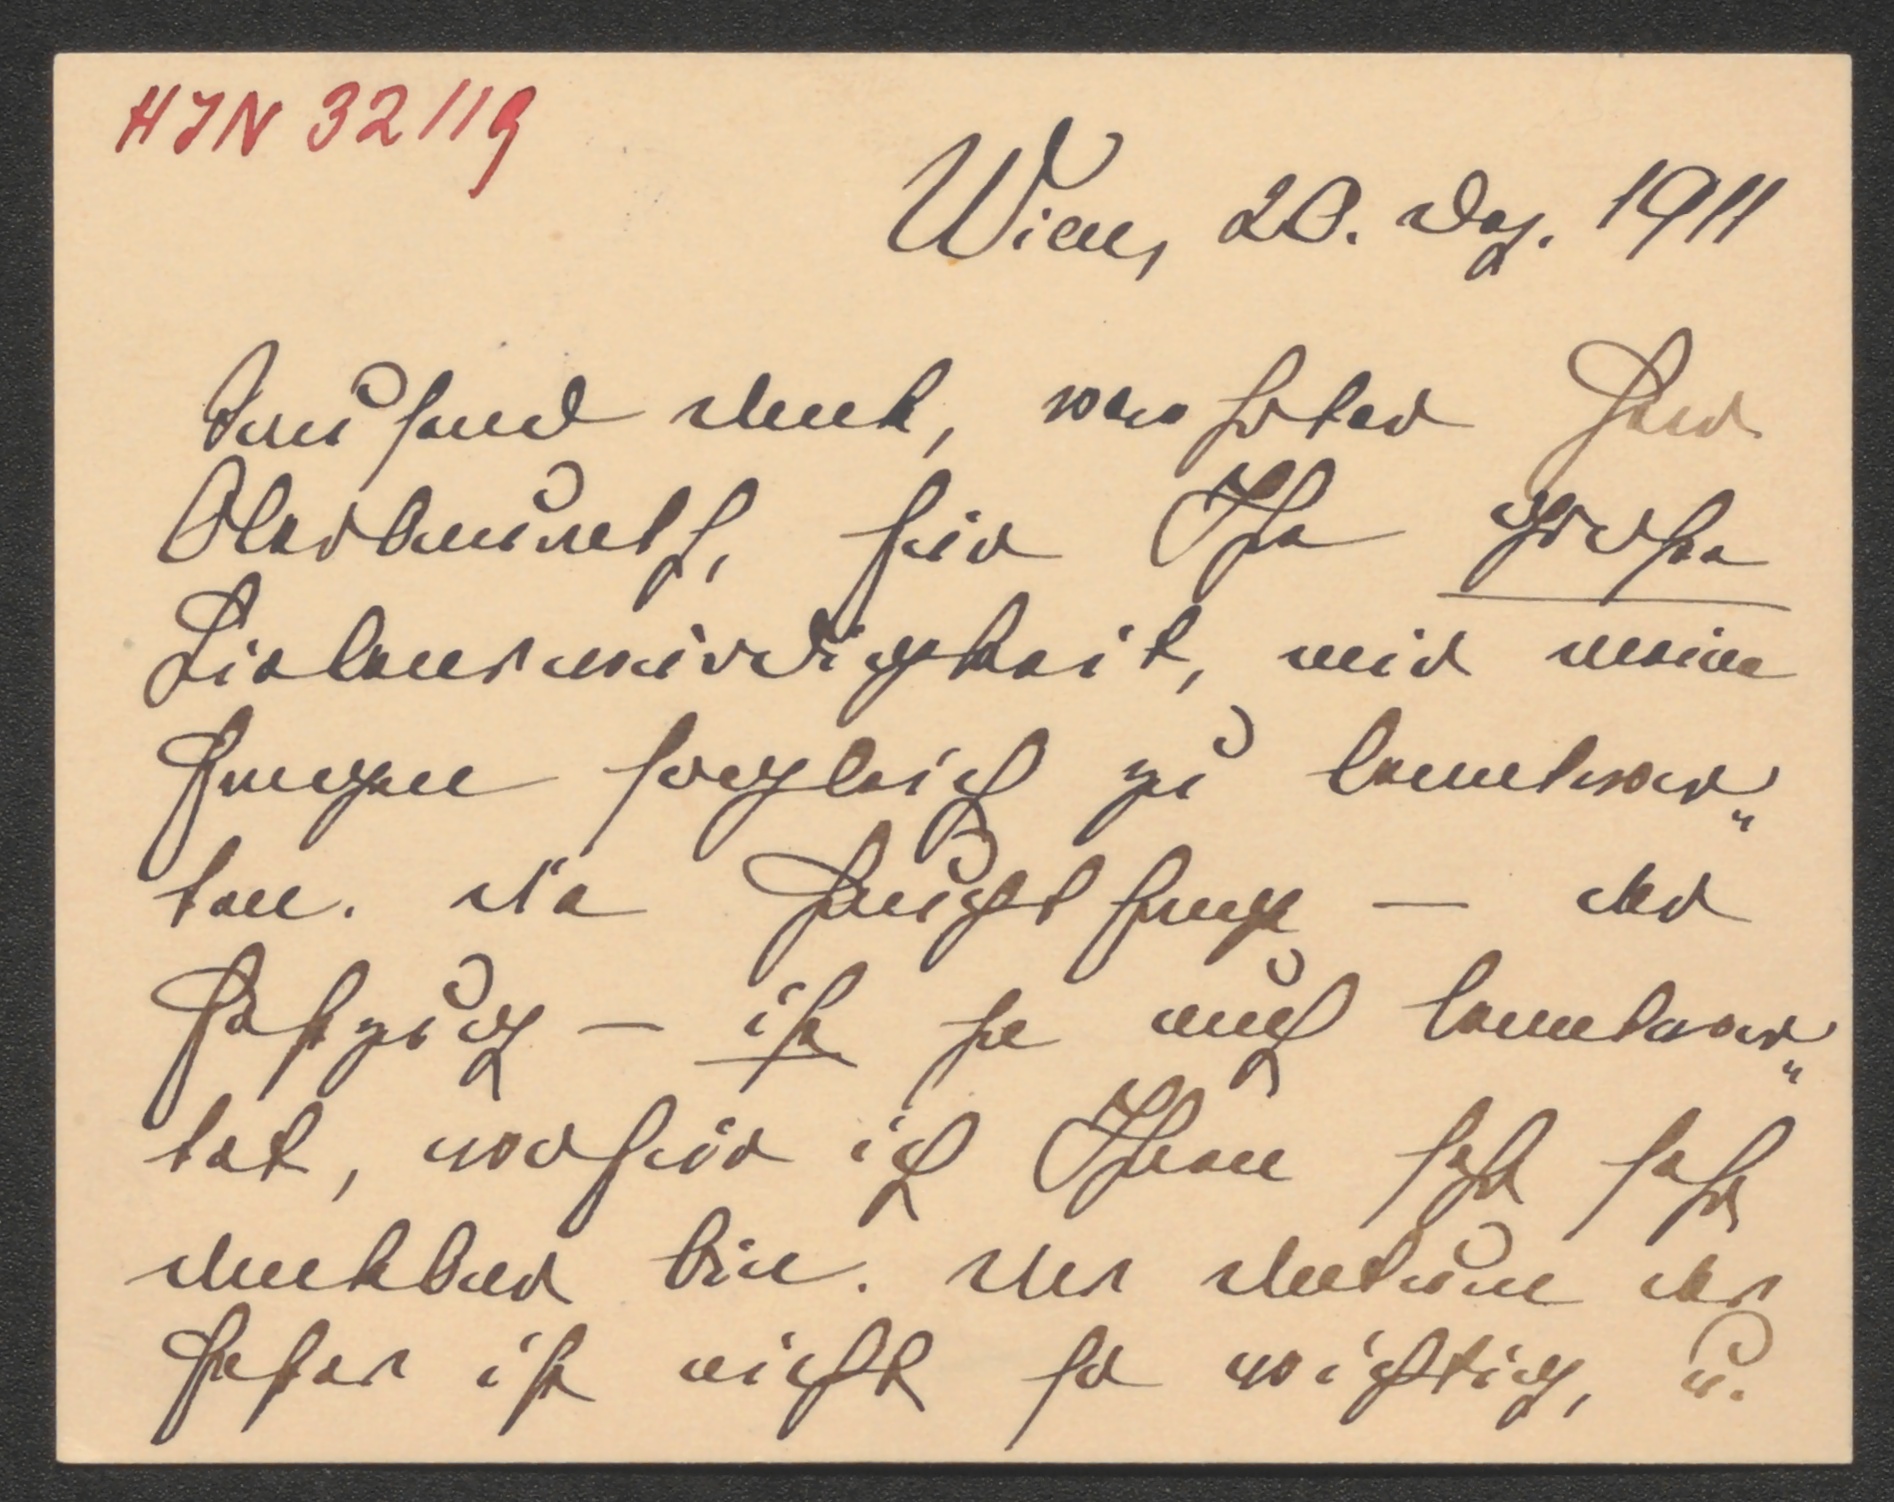 HJN 32119
Wien, 20. Dez. 1911
Tausend Dank, verehrter Herr
Oberbaurath, für Ihre große
Liebenswürdigkeit, mir meine
Fragen sogleich zu beantwor„
ten. Die Hauptfrage — der
Festzug — ist ja auch beantwor„
tet, wofür ich Ihnen sehr sehr
dankbar bin. Das Datum des
Festes ist nicht so wichtig, u.